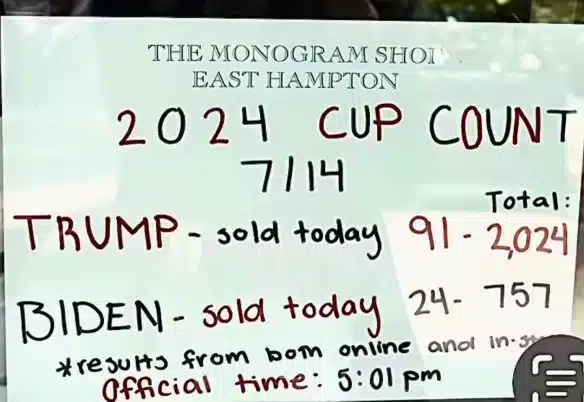 THE MONOGRAM SHOP
EAST HAMPTON
2024 CUP COUNT
7/14
Total:
TRUMP - sold today 91 - 2,024
BIDEN - sold today 24 - 757
*results from both online and in-
Official time: 5:01 pm